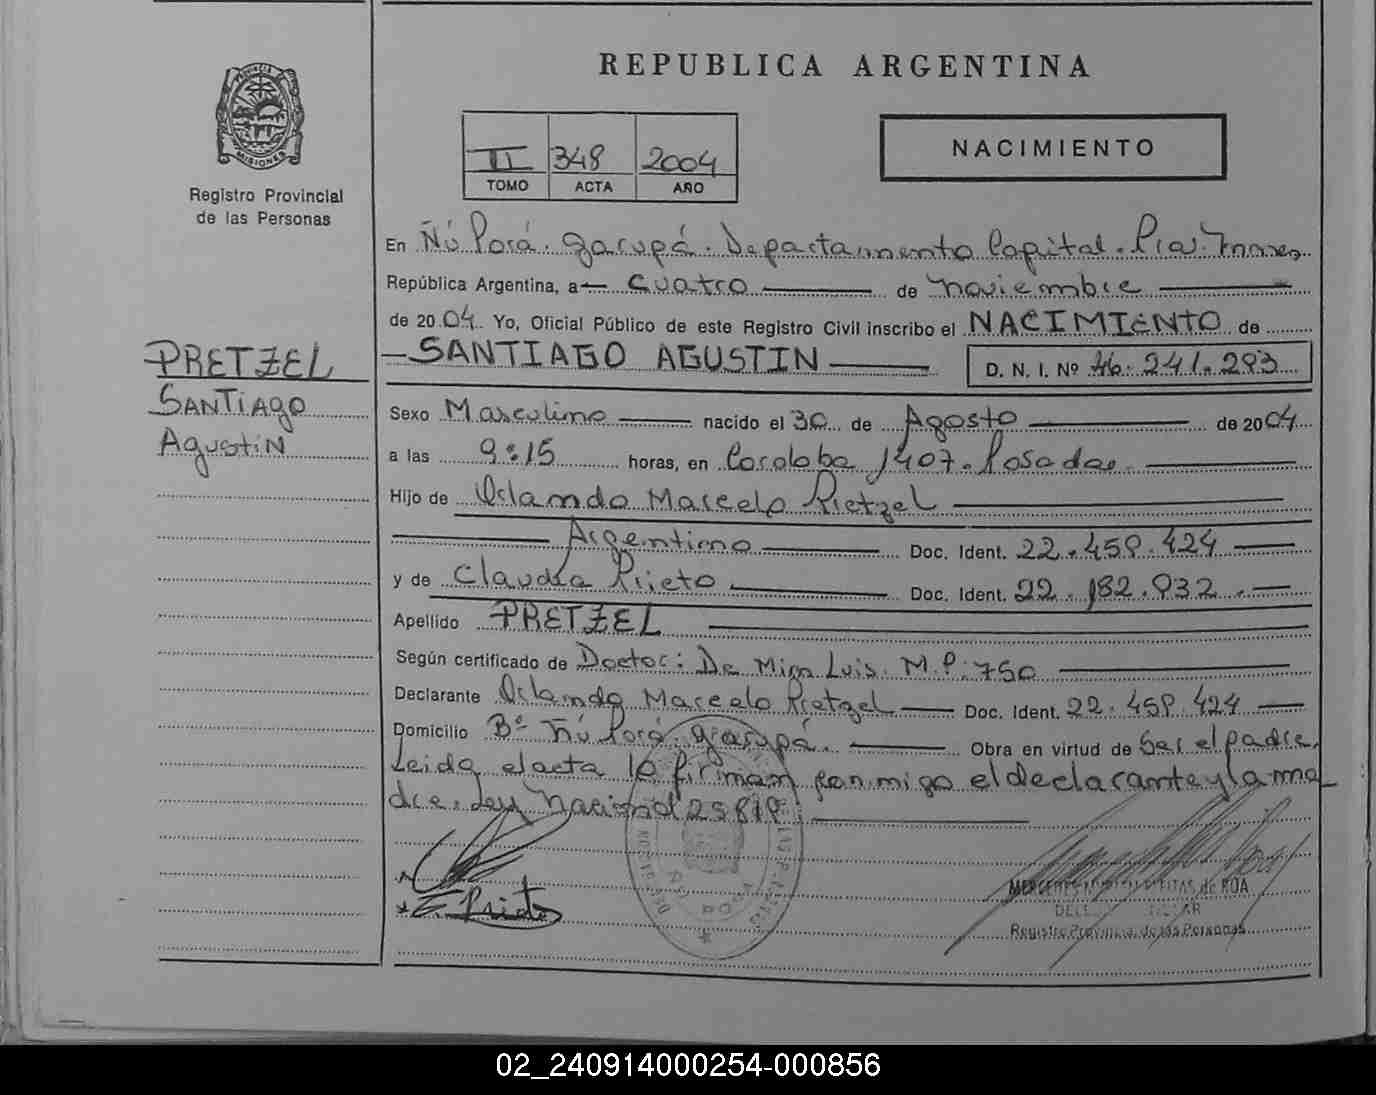 REPUBLICA ARGENTINA
PROVINCIA DE
MISIONES
Registro Provincial
de las Personas
II 348 2004
TOMO ACTA AÑO
NACIMIENTO
En Ñú Porá. Garupá. Departamento Capital. Pcia. Mnes.
República Argentina, a — cuatro — de noviembre —
de 2004. Yo, Oficial Público de este Registro Civil inscribo el NACIMIENTO de
— SANTIAGO AGUSTIN — D. N. I. Nº 46.241.293
PRETZEL
SANTIAGO
AGUSTIN
Sexo Masculino — nacido el 30 de Agosto — de 2004
a las 9:15 horas, en Cordoba 1407. Posadas. —
Hijo de Orlando Marcelo Pretzel —
— Argentino — Doc. Ident. 22.459.424 —
y de Claudia Prieto — Doc. Ident. 22.182.932. —
Apellido PRETZEL —
Según certificado de Doctor: De Luis. M.P: 750 —
Declarante Orlando Marcelo Pretzel — Doc. Ident. 22.459.424 —
Domicilio Bº Ñú Porá. Garupá. — Obra en virtud de ser el padre.
Leida el acta la firman conmigo el declarante y la ma-
dre. Ley Nacional 25819. —
Prieto
MERCEDES FREITAS de ROA
Registro Provincial de las Personas
02_240914000254-000856